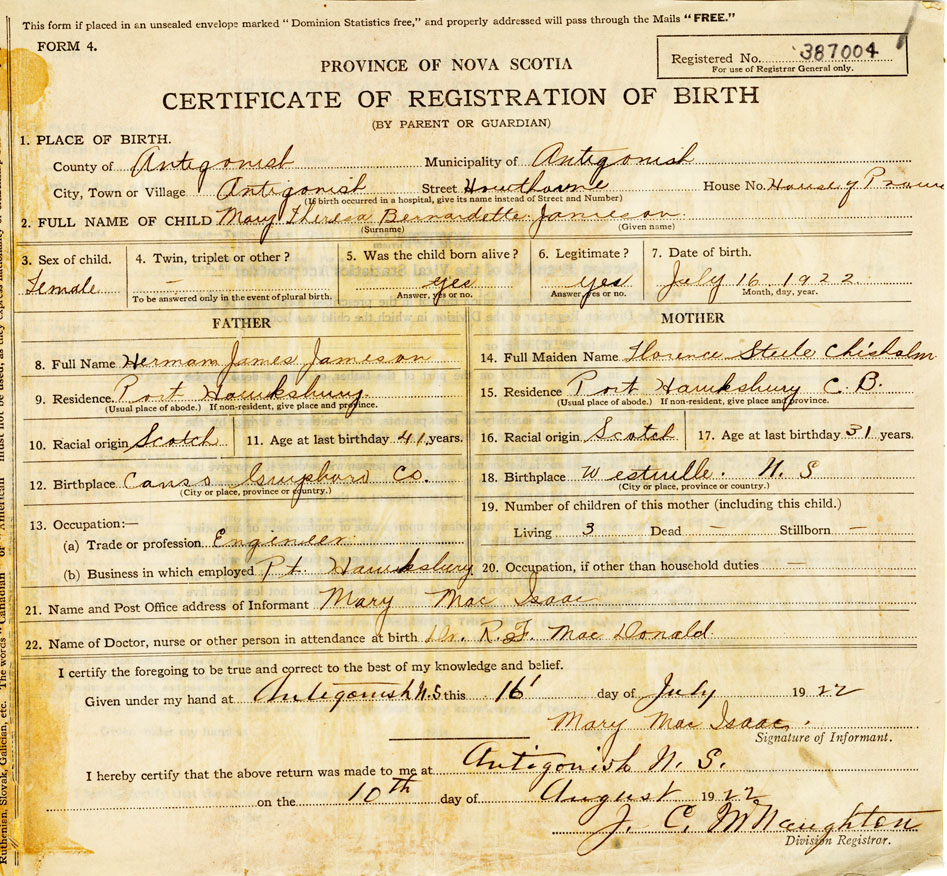 This form if placed in an unsealed envelope marked “Dominion Statistics free,” and properly addressed will pass through the Mails “FREE.”
FORM 4.
Registered No. 387004
For use of Registrar General only.
PROVINCE OF NOVA SCOTIA
CERTIFICATE OF REGISTRATION OF BIRTH
(BY PARENT OR GUARDIAN)
1. PLACE OF BIRTH.
County of Antigonish Municipality of Antigonish
City, Town or Village Antigonish Street Hawthorne House No. House of
(If birth occurred in a hospital, give its name instead of Street and Number)
2. FULL NAME OF CHILD Mary Theresa Bernardette Jameson.
(Surname) (Given name)
3. Sex of child. 4. Twin, triplet or other? 5. Was the child born alive? 6. Legitimate? 7. Date of birth.
Female — yes yes July 16 1922
To be answered only in the event of plural birth. Answer, yes or no. Answer yes or no. Month, day, year.
FATHER MOTHER
8. Full Name Herman James Jameson 14. Full Maiden Name Florence Steele Chisholm
9. Residence. Port Hawksbury. 15. Residence Port Hawksbury C. B.
(Usual place of abode.) If non-resident, give place and province. (Usual place of abode.) If non-resident, give place and province.
10. Racial origin Scotch 11. Age at last birthday 41 years. 16. Racial origin Scotch 17. Age at last birthday 31 years.
12. Birthplace Canso Co. 18. Birthplace Westville. N. S
(City or place, province or country.) (City or place, province or country.)
13. Occupation:— 19. Number of children of this mother (including this child.)
(a) Trade or profession Engineer Living 3 Dead — Stillborn —
(b) Business in which employed Pt. Hawksbury 20. Occupation, if other than household duties —
21. Name and Post Office address of Informant Mary Mac Isaac
22. Name of Doctor, nurse or other person in attendance at birth Dr. R. F. Mac Donald
I certify the foregoing to be true and correct to the best of my knowledge and belief.
Given under my hand at Antigonish N.S. this 16' day of July 1922
Mary Mac Isaac.
Signature of Informant.
I hereby certify that the above return was made to me at Antigonish N. S.
on the 10th day of August 1922
J. C. McNaughton
Division Registrar.